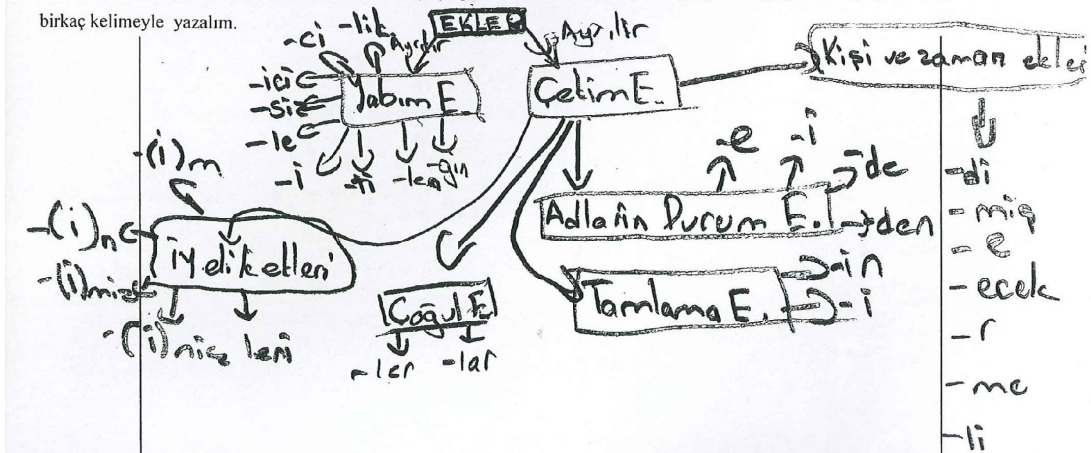 birkaç kelimeyle yazalım.
EKLER
Ayrılır
Ayrılır
-ci
-lik
-ici
-siz
-le
Yapım E
-i
-len
-gin
Çekim E.
Kişi ve zaman ekleri
-di
-miş
-e
-ecek
-r
-me
-li
-e
-i
-de
-den
Adların Durum E.
Tamlama E.
-in
-i
Çoğul E
-ler
-lar
İyelik ekleri
-(i)m
-(i)n
-(i)miz
-(i)niz
leri